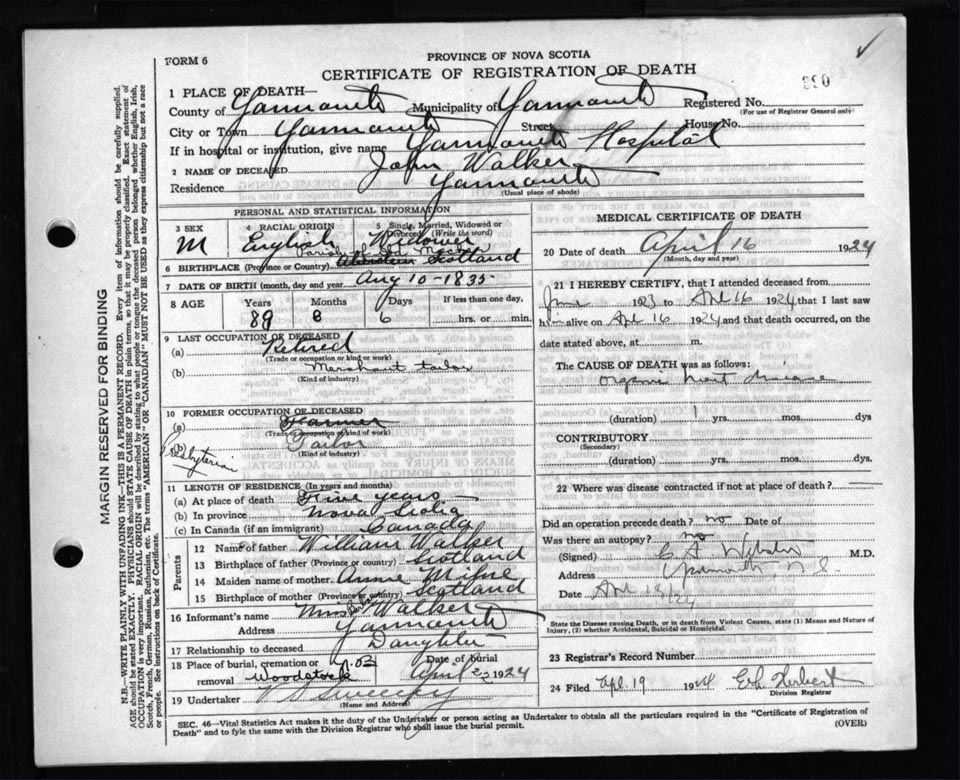 FORM 6
PROVINCE OF NOVA SCOTIA
CERTIFICATE OF REGISTRATION OF DEATH
1 PLACE OF DEATH—
County of Yarmouth Municipality of Yarmouth Registered No.
(For use of Registrar General only)
City or Town Yarmouth Street House No.
If in hospital or institution, give name Yarmouth Hospital
2 NAME OF DECEASED John Walker
Residence Yarmouth
(Usual place of abode)
MARGIN RESERVED FOR BINDING
N.B.—WRITE PLAINLY WITH UNFADING INK—THIS IS A PERMANENT RECORD. Every item of information should be carefully supplied.
AGE should be stated EXACTLY. PHYSICIANS should STATE CAUSE OF DEATH in plain terms, so that it may be properly classified. Exact statement of
OCCUPATION is very important. RACIAL ORIGIN will be described by stating to what people or tongue the deceased person belonged whether English, Irish,
Scotch, French, German, Russian, Ruthenian, etc. The terms "AMERICAN" OR "CANADIAN" MUST NOT BE USED as they express citizenship but not a race
or people. See instructions on back of Certificate.
PERSONAL AND STATISTICAL INFORMATION
3 SEX 4 RACIAL ORIGIN 5 Single, Married, Widowed or
Divorced (Write the word)
M English Widower
6 BIRTHPLACE (Province or Country) Aberdeen Scotland
7 DATE OF BIRTH (month, day and year) Aug 10-1835
8 AGE Years Months Days If less than one day,
89 8 6 hrs. or min.
9 LAST OCCUPATION OF DECEASED
(a) Retired
(Trade or occupation or kind or work)
(b) Merchant tailor
(Kind of industry)
10 FORMER OCCUPATION OF DECEASED
(a) Farmer
(Trade or occupation or kind of work)
(b) Tailor
(Kind of industry)
Presbyterian
11 LENGTH OF RESIDENCE (In years and months)
(a) At place of death Five years
(b) In province Nova Scotia
(c) In Canada (if an immigrant) Canada
Parents
12 Name of father William Walker
13 Birthplace of father (Province or country) Scotland
14 Maiden name of mother Annie Milne
15 Birthplace of mother (Province or country) Scotland
16 Informant's name Miss Walker
Address Yarmouth
17 Relationship to deceased Daughter
18 Place of burial, cremation or Date of burial
removal Woodstock N.B. April 1924
19 Undertaker V S Sweeny
(Name and Address)
MEDICAL CERTIFICATE OF DEATH
20 Date of death April 16 1924
(Month, day and year)
21 I HEREBY CERTIFY, that I attended deceased from
June 1923 to Apl 16 1924 that I last saw
him alive on Apl 16 1924 and that death occurred, on the
date stated above, at m.
The CAUSE OF DEATH was as follows:
organic heart disease
(duration) 1 yrs. mos. dys
CONTRIBUTORY
(Secondary)
(duration) yrs. mos. dys.
22 Where was disease contracted if not at place of death?
Did an operation precede death? no Date of
Was there an autopsy? no
(Signed) C A Webster M.D.
Address Yarmouth, N.S.
Date Apl 24
State the Disease causing Death, or in death from Violent Causes, state (1) Means and Nature of
Injury, (2) whether Accidental, Suicidal or Homicidal.
23 Registrar's Record Number
24 Filed Apl. 19 1924 Herbert
Division Registrar
SEC. 46—Vital Statistics Act makes it the duty of the Undertaker or person acting as Undertaker to obtain all the particulars required in the "Certificate of Registration of
Death" and to fyle the same with the Division Registrar who shall issue the burial permit.
(OVER)